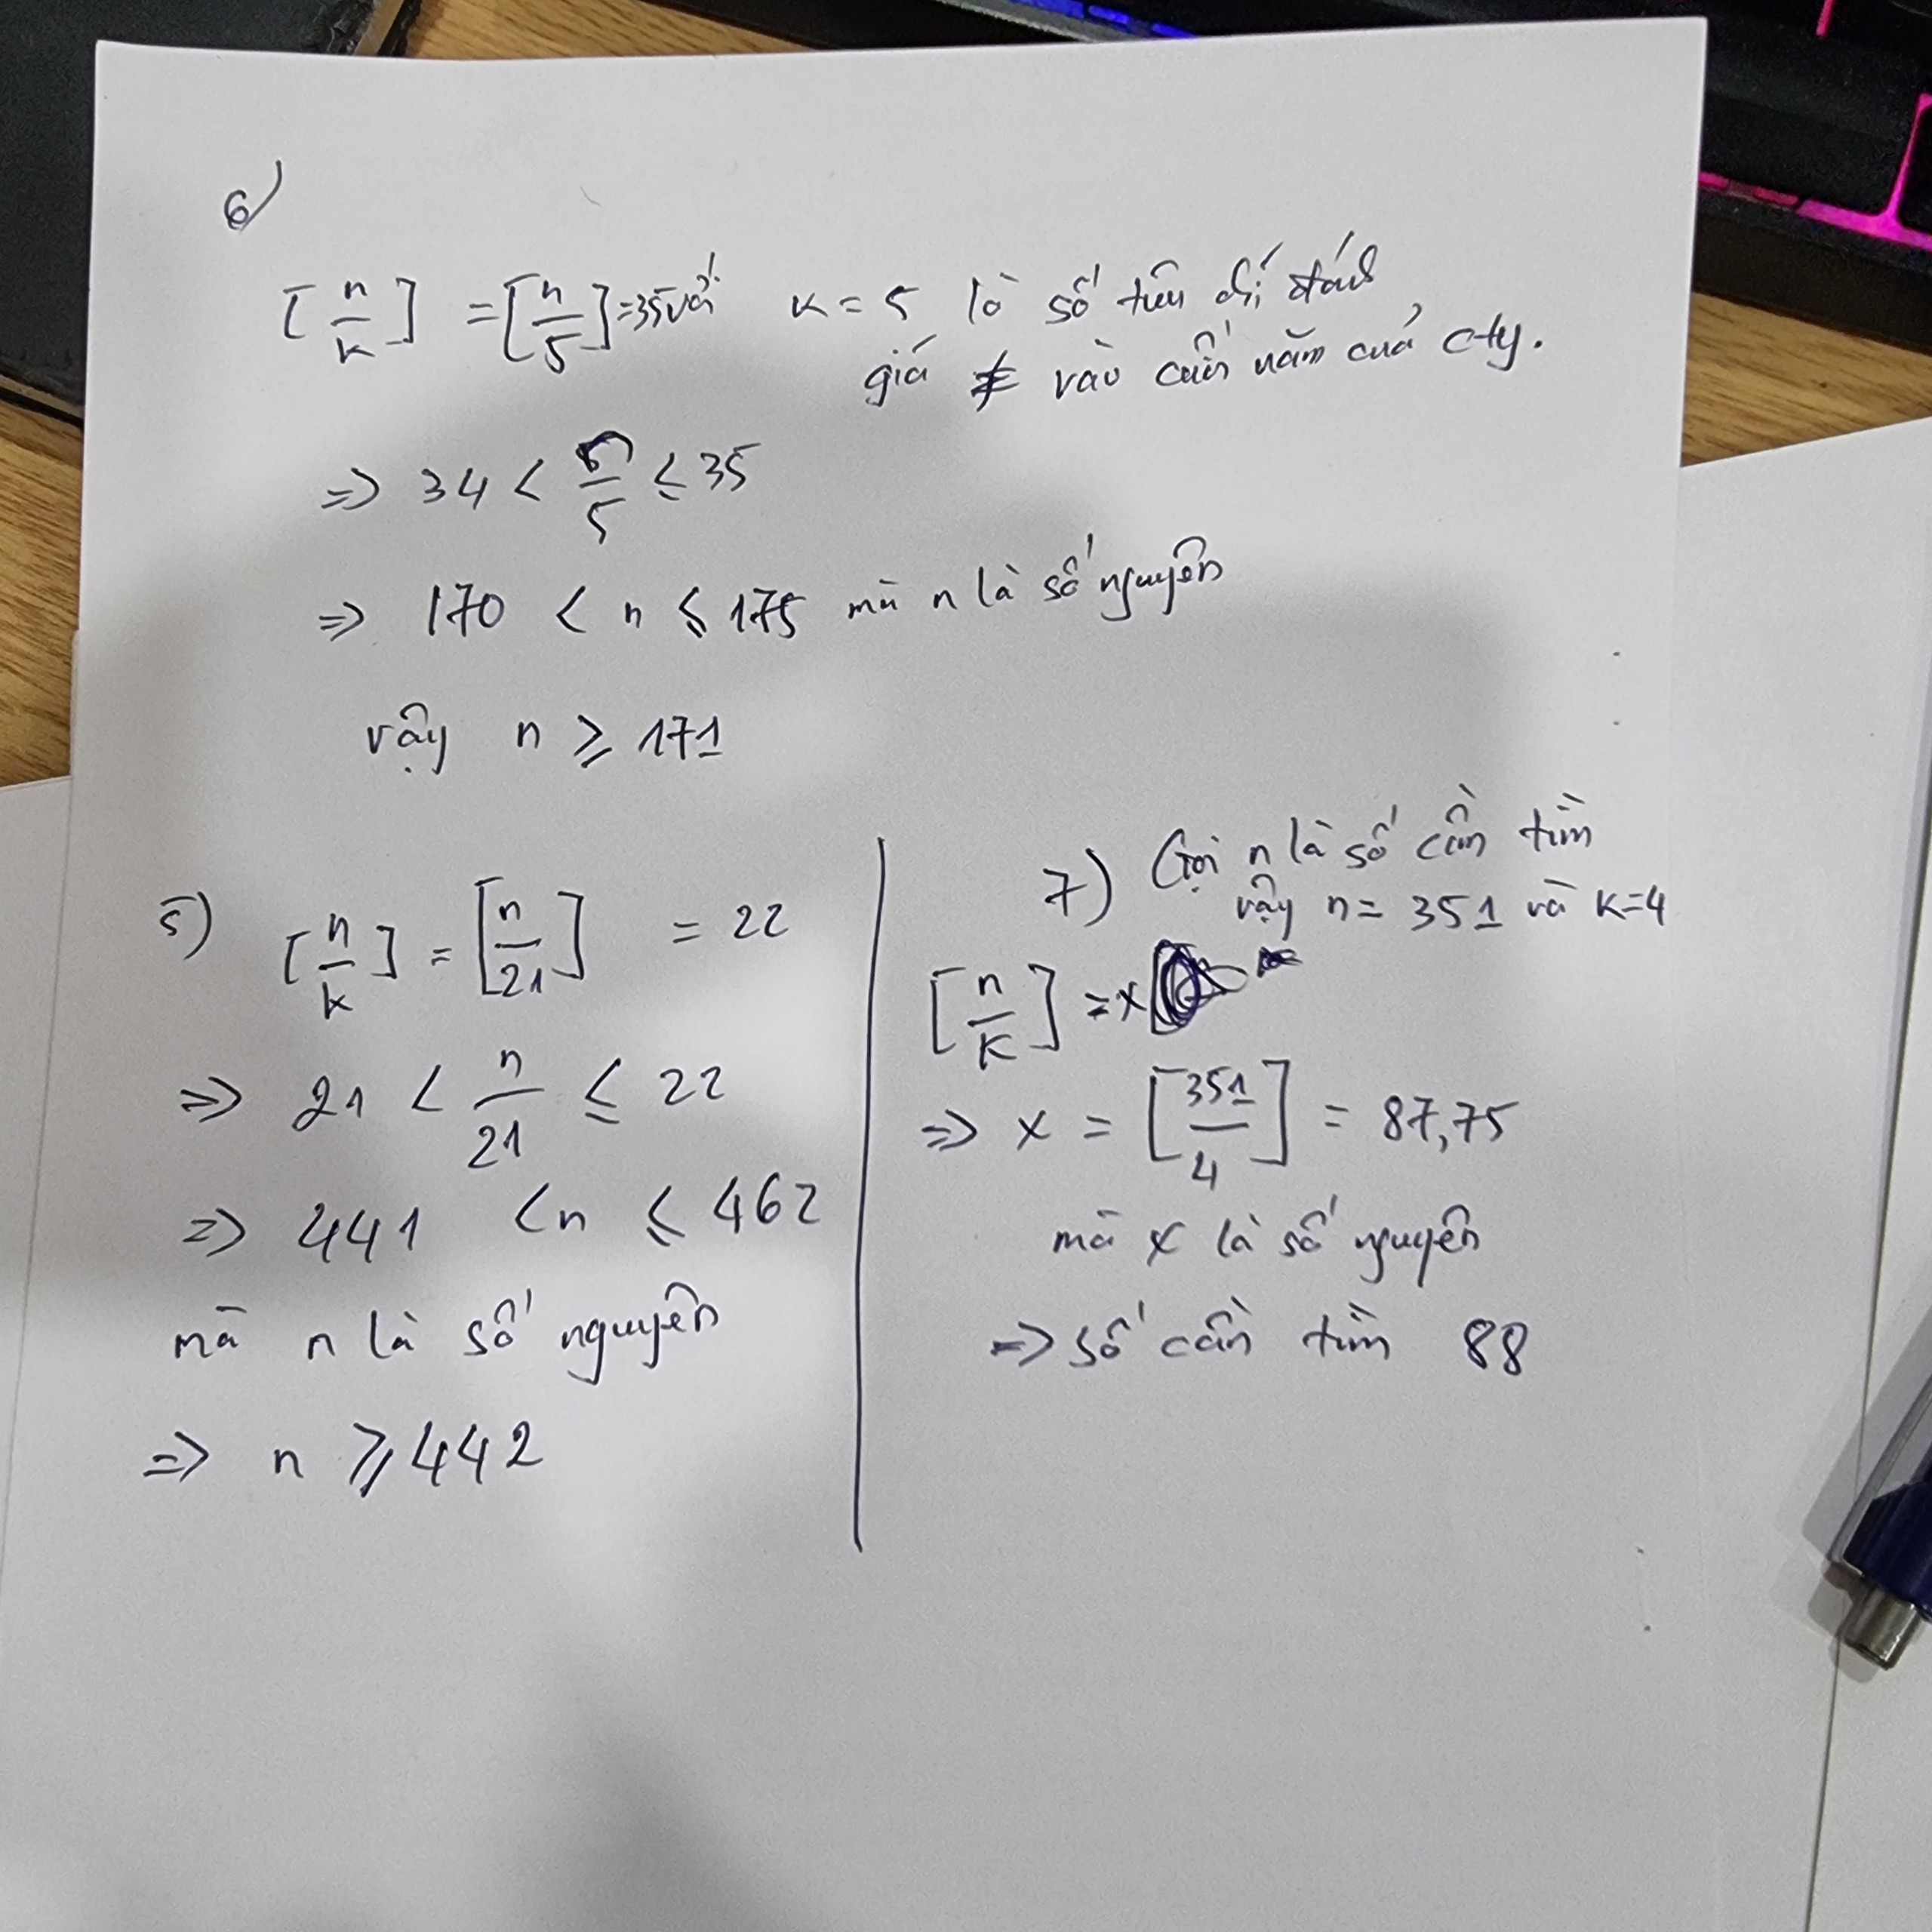 6)
[n/k] = [n/5] = 35 với k = 5 là số tiêu chí đánh
giá vào cuối năm của cty.
=> 34 < n/5 ≤ 35
=> 170 < n ≤ 175 mà n là số nguyên
vậy n ≥ 171
5) [n/k] = [n/21] = 22
=> 21 < n/21 ≤ 22
=> 441 < n ≤ 462
mà n là số nguyên
=> n ≥ 442
7) Gọi n là số cần tìm
vậy n = 351 và k=4
[n/k] = x
=> x = [351/4] = 87,75
mà x là số nguyên
=> số cần tìm 88